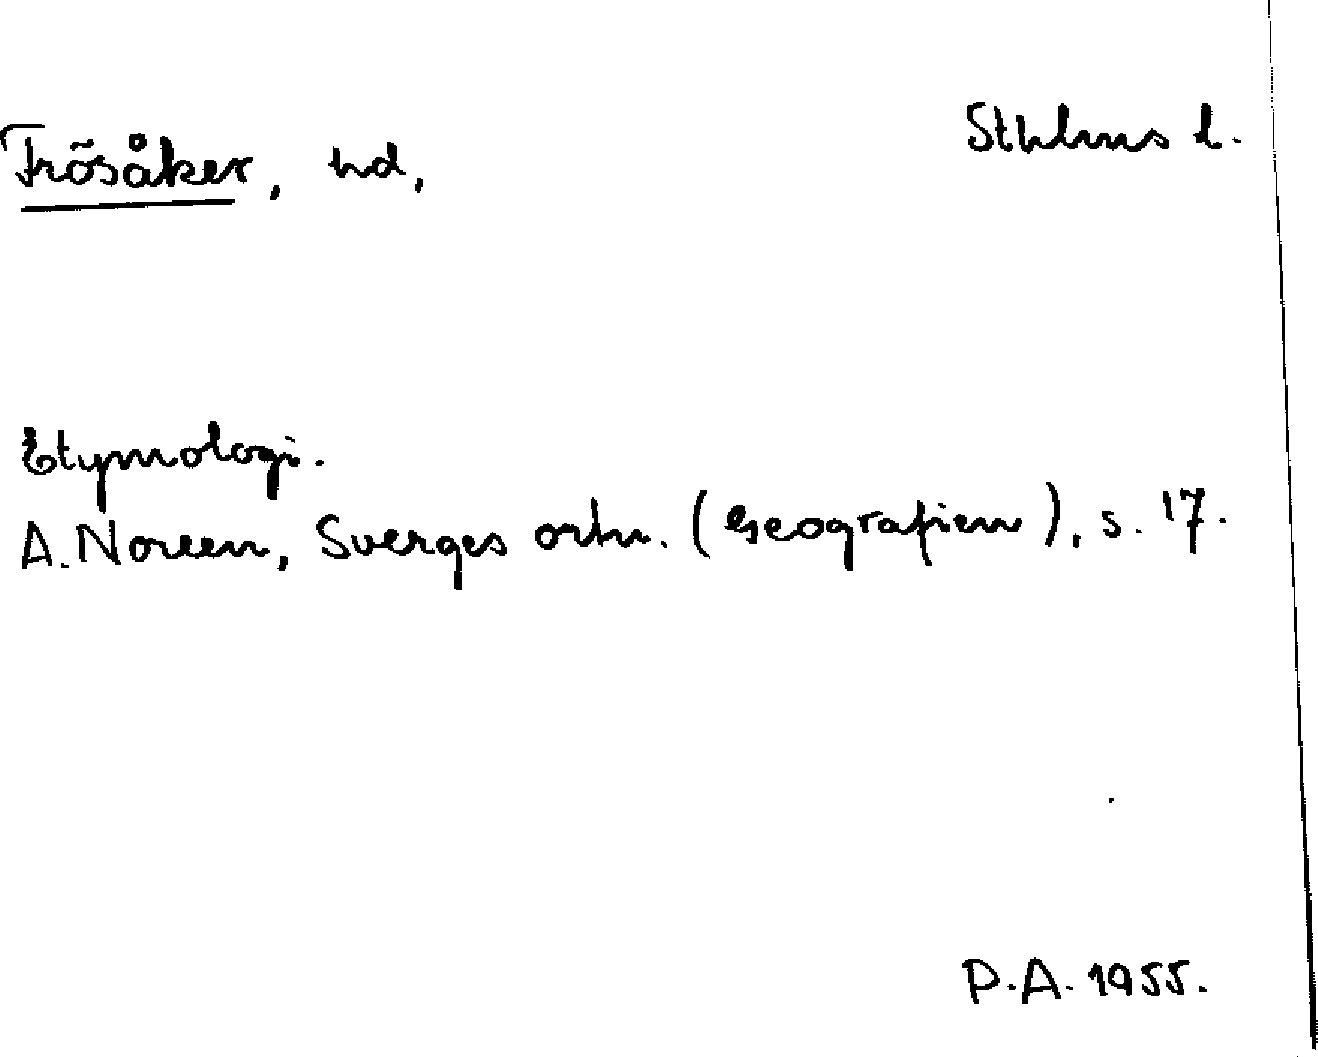 Frösåker, hd,
Sthlms l.
Etymologi.
A. Noreen, Sverges ortn. (Geografien), s. 17.
P.A. 1955.